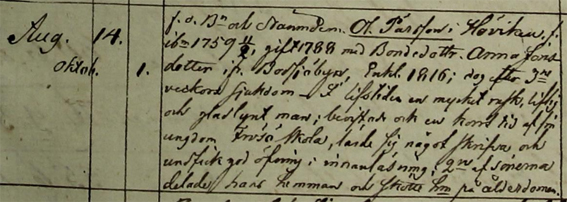 Aug. 14. f. d. Bn och Nämndem. Ol. Pärsson i Höviken, f.
Oktob. 1. ibm 1759, gift 1788 med Bondedottr. Anna Jons
dotter ifr. Bodsjöbyn, Enkl. 1816; dog efter 3ne
veckors sjukdom – I lifstiden en mycket rask, liflig
och gladlynt man; bevistade ock en kort tid af sin
ungdom Frösö skola, lärde sig något skrifva och
undfick god öfning i innanläsning; 2ne af sönerna
delade hans hemman och skötte hm på ålderdomen.